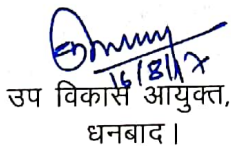 16/8/17
उप विकास आयुक्त,
धनबाद।